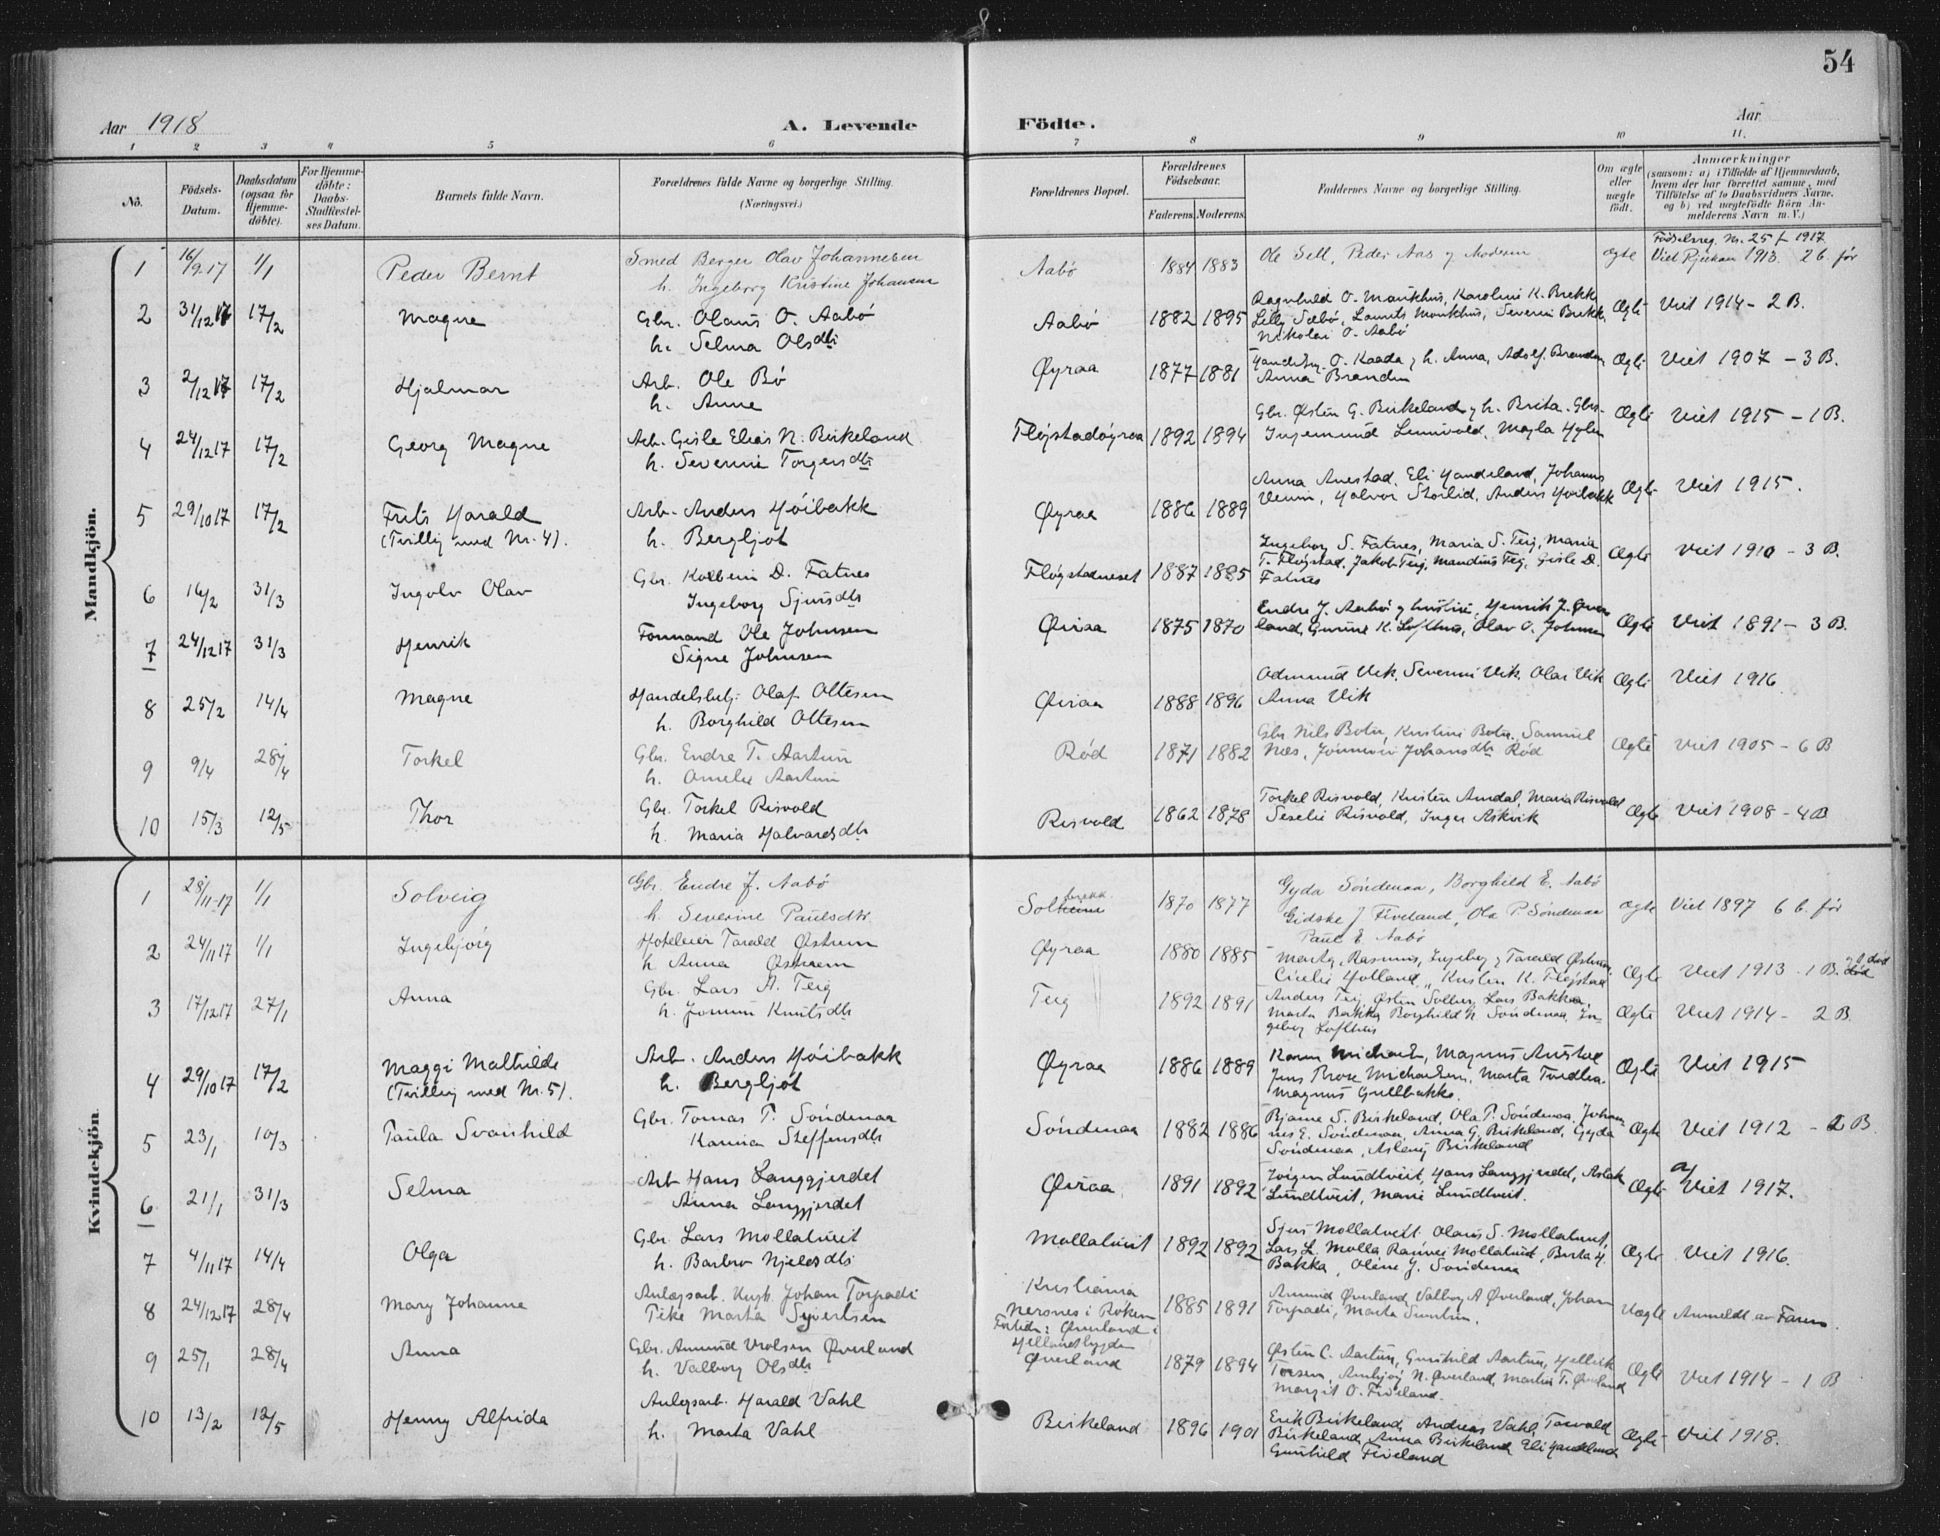 54
Aar 1918
A. Levende Födte.
Aar
1 2 3 4 5 6 7 8 9 10 11.
No.
Födsels-Datum.
Daabsdatum (ogsaa for Hjemme-döbte).
For Hjemme-döbte: Daabs-Stadfæstel-ses Datum.
Barnets fulde Navn.
Forældrenes fulde Navne og borgerlige Stilling.
(Næringsvei.)
Forældrenes Bopæl.
Forældrenes Födselsaar.
Faderens. Moderens.
Faddernes Navne og borgerlige Stilling.
Om ægte eller uægte födt.
Anmærkninger
(saasom: a) i Tilfælde af Hjemmedaab,
hvem der har forrettet samme, med
Tilföielse af to Daabsvidners Navne,
og b) ved uægtefödte Börn An-
melderens Navn m. V.)
Mandkjön.
1 16/9 17 1/1 Peder Bernt Smed Berger Olav Johannesen
h. Ingeborg Kristine Johansen
Aabö 1884 1883 Ole Sell, Peder Aas og Moderen ægte
Födselsreg. Nr. 25 f 1917
Viet Rjukan 1913. 2 b. før
2 31/12 17 17/2 Magne Gbr. Olaus O. Aabö
h. Selma Olsdtr
Aabö 1882 1895 Ragnhild O. Maukhus, Karoline K. Brekke
Lilly Sæbö, Laurits Maukhus, Severin Brekke,
Nikolai O. Aabö
Ægte Viet 1914 - 2 B.
3 2/12 17 17/2 Hjalmar Arb. Ole Bö
h. Anne
Øyraa 1877 1881 O. Kaada og h. Anna, Adolf Branden
Anna Branden
Ægte Viet 1907 - 3 B.
4 24/12 17 17/2 Georg Magne Arb. Gisle Elias N. Birkeland
h. Severine Torgersdtr
Fløgstadøyraa 1892 1894 Gbr. Østen G. Birkeland og h. Brita. Gbr.
Ingemund Linnvold, Magla
Ægte Viet 1915 - 1 B.
5 29/10 17 17/2 Frits Harald
(Tvilling med Nr. 4).
Arb. Anders Höibakk
h. Bergljot
Øyraa 1886 1889 Anna Anestad, Eli Handeland, Johannes
Venim, Halvor Storlid, Anders Höibakk
Ægte Viet 1915.
6 16/2 31/3 Ingolv Olav Gbr. Kolbein D. Fatnes
Ingeborg Sjursdtr
Fløgstadneset 1887 1885 Ingeborg S. Fatnes, Maria S. Teig, Maria
T. Fløgstad, Jakob Teig, Mandius Teig, Gisle D.
Fatnes
Ægte Viet 1910 - 3 B.
7 24/12 17 31/3 Henrik Formand Ole Johnsen
Signe Johnsen
Øiraa 1875 1870 Endre J. Aabö og hustru, Henrik J. Över-
land, Gurine K. Lofthus, Olav O. Johnsen
Ægte Viet 1891 - 3 B.
8 25/2 14/4 Magne Handelsbetj. Olaf Ottesen
h. Borghild Ottesen
Øiraa 1888 1896 Odmund Vik, Severin Vik, Olav Vik
Anna Vik
Ægte Viet 1916
9 9/4 28/4 Torkel Gbr. Endre T. Aartun
h. Amelie Aartun
Röd 1871 1882 Gbr Nils Boten, Kristine Boten, Samuel
Næs, Johansdtr Röd
Ægte Viet 1905 - 6 B
10 15/3 12/5 Thor Gbr. Torkel Risvold
h. Maria Halvardsdtr
Risvold 1862 1878 Torkel Risvold, Kristen Amdal, Maria Risvold
Seselie Risvold, Inger Askvik
Ægte Viet 1908 - 4 B
Kvindekjön
1 28/11-17 1/1 Solveig Gbr. Endre J. Aabö
h. Severine Paulsdtr.
Solheim brekk 1870 1877 Gyda Söndenaa, Borghild E. Aabö
Gidske J Fiveland, Ola P. Söndenaa
Paul E. Aabö
ægte Viet 1897 6 b. før
2 24/11 17 1/1 Ingebjörg Hoteleier Tarald Østrem
h Anna Østrem
Øyraa 1880 1885 Marta, Rasmus, Ingeborg og Tarald Østrem,
Cecilie Holland, Kristen K. Fløgstad
Ægte Viet 1913 - 1 B. død
3 17/12 17 27/1 Anna Gbr. Lars A. Teig
h. Jorunn Knutsdtr
Teig 1892 1891 Anders Teig, Østen Solberg, Lars Bakka,
Marta Bakka, Borghild N. Söndenaa, In-
geborg Lofthus
Ægte Viet 1914 - 2 B.
4 29/10 17 17/2 Maggi Mathilde
(Tvilling med Nr. 5).
Arb. Anders Höibakk
h. Bergljot
Øyraa 1886 1889 Karen Michaelsen, Magnus Anestad
Jens Broe Michaelsen, Marta
Magnus Gullbakke.
Ægte Viet 1915
5 23/1 10/3 Paula Svanhild Gbr. Tomas T. Söndenaa
Karina Steffensdtr
Söndenaa 1882 1886 Bjarne S. Birkeland, Ola P. Söndenaa, Johan-
nes E. Söndenaa, Anna G. Birkeland, Gyda
Söndenaa, Aslaug Birkeland
Ægte Viet 1912 - 2 B.
6 21/1 31/3 Selma Arb Hans Langgjerdet
Anna Langgjerdet
Øiraa 1891 1892 Jörgen Lundtveit, Hans Langgjerdet, Aslak
Lundtveit, Marie Lundtveit.
Ægte a/ Viet 1917.
7 4/11 17 14/4 Olga Gbr. Lars Mollatveit
h. Barbro Njelesdtr
Mollatveit 1892 1892 Sjur Mollatveit, Olaus S. Mollatveit,
Lars L. Molla, Rannei Mollatveit, Berta H.
Bakka, Oline J. Söndenaa
Ægte Viet 1916.
8 24/12 17 28/4 Mary Johanne Anlegsarb. Ungk. Johan Torpadi
Pike Marta Syvertsen
Kristiania
Nersnes i Röken
Fortiden: Øverland i
Hellandsbygden
1885 1891 Amund Øverland, Valborg A Øverland, Johan
Torpadi, Marta
Uægte Anmeldt av Faren.
9 25/1 28/4 Anna Gbr. Amund Øverland
h. Valborg Olsdtr
Øverland 1879 1894 Østen C. Aartun, Gunhild Aartun, Hellik
Torsen, Annbjör N. Øverland, Martin T. Øverland
Margit O. Fiveland.
Ægte Viet 1914 - 1 B
10 13/2 12/5 Henny Alfrida Anlegsarb. Harald Vahl
h. Marta Vahl
Birkeland 1896 1901 Erik Birkeland, Andreas Vahl, Torvald
Birkeland, Anna Birkeland, Eli Handeland
Gunhild Fiveland
Ægte Viet 1918.